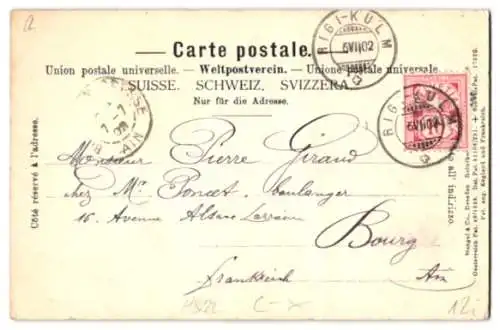 2
Carte postale.
Union postale universelle. — Weltpostverein. — Unione postale universale.
SUISSE. SCHWEIZ. SVIZZERA.
Nur für die Adresse.
RIGI-KULM
6 VII 02
RIGI-KULM
6 VII 02
Côté réservé à l'adresse.
Monsieur Pierre Giraud
chez Mr Poncet, boulanger
16, Avenue Alsace Lorraine
Bourg
Frankreich
Ain
all' indirizzo.
Stengel & Co., Dresden
12